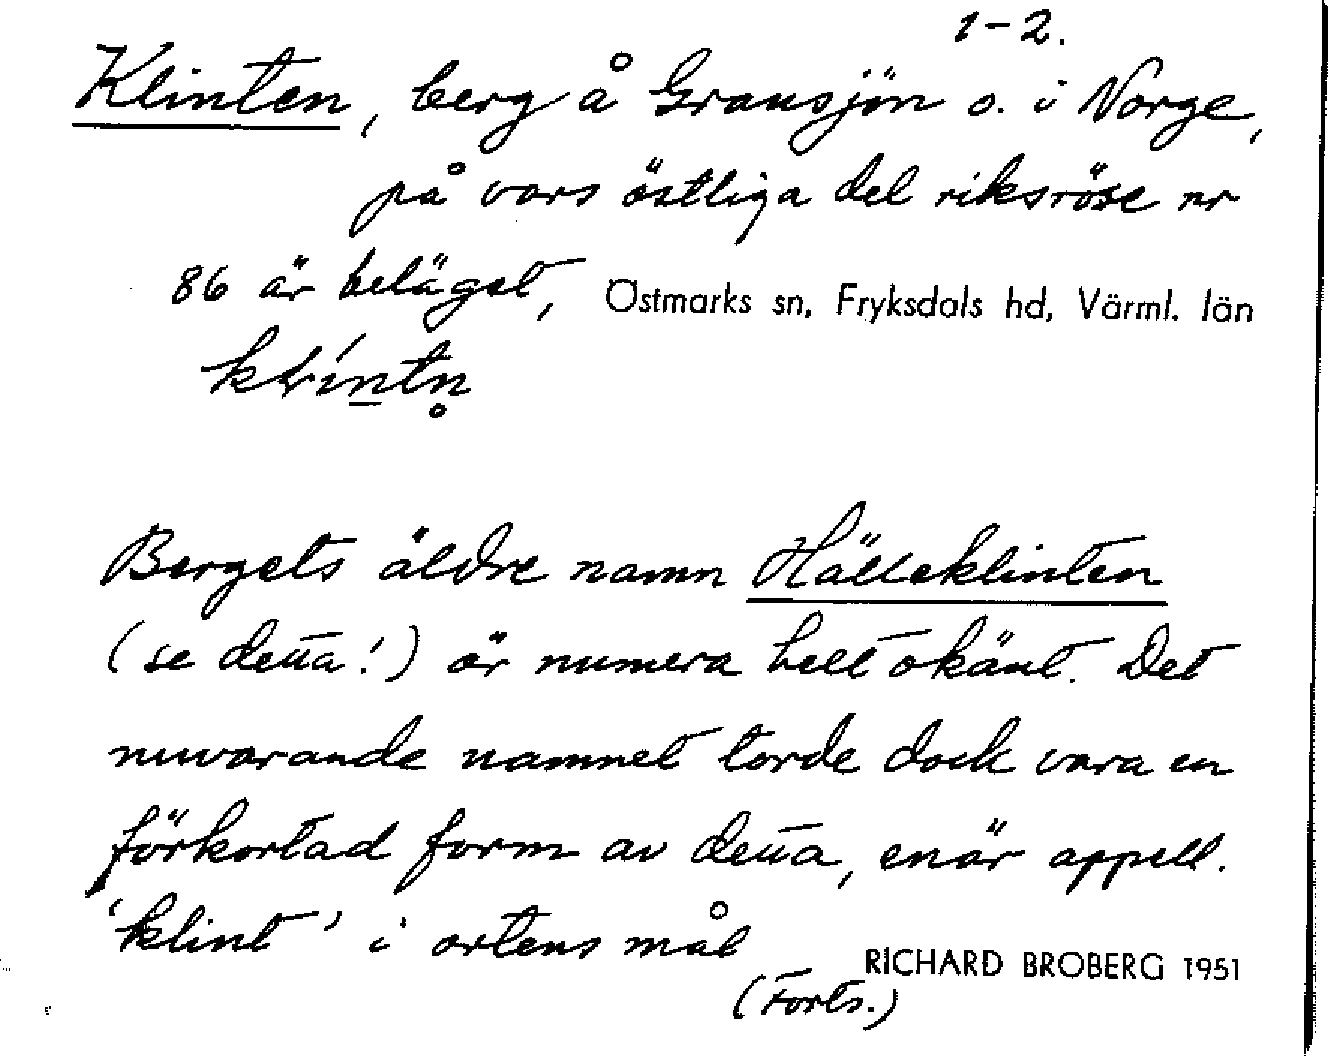 1-2.
Klinten, berg å Gransjön o. i Norge,
på vars östliga del riksröse nr
86 är beläget, Östmarks sn, Fryksdals hd, Värml. län
Bergets äldre namn Hälleklinten
(se detta!) är numera helt okänt. Det
nuvarande namnet torde dock vara en
förkortad form av detta, enär appell.
'klint' i ortens mål
RICHARD BROBERG 1951
(Forts.)